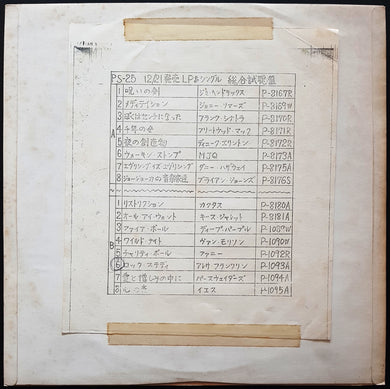 PS-25 12/21発売 LP&シングル 総合試聴盤
A
1 呪いの剣 ジミ・ヘンドリックス P-8167R
2 メディテイション ジョニー・リマーズ P-8169W
3 ぼくはセンチになった フランク・シナトラ P-8170R
4 千年の女 フリートウッド・マック P-8171R
5 夜の創造物 デューク・エリントン P-8172R
6 ウォーキン・ストンプ MJQ P-8173A
7 エヴリシング・イズ・エヴリシング ダニー・ハサウェイ P-8175A
8 ジョージューカの音楽 ブライアン・ジョーンズ P-8176S
B
1 リストリクション カクタス P-8180A
2 オール・アイ・ウォント キース・ジャレット P-8181A
3 ファイア・ボール ディープ・パープル P-1089W
4 ワイルド・ナイト ヴァン・モリソン P-1090W
5 チャリティ・ボール ファニー P-1092R
6 ロック・ステディ アレサ・フランクリン P-1093A
7 愛と憎しみの中に パースウェイダーズ P-1094A
8 心の イエス P-1095A